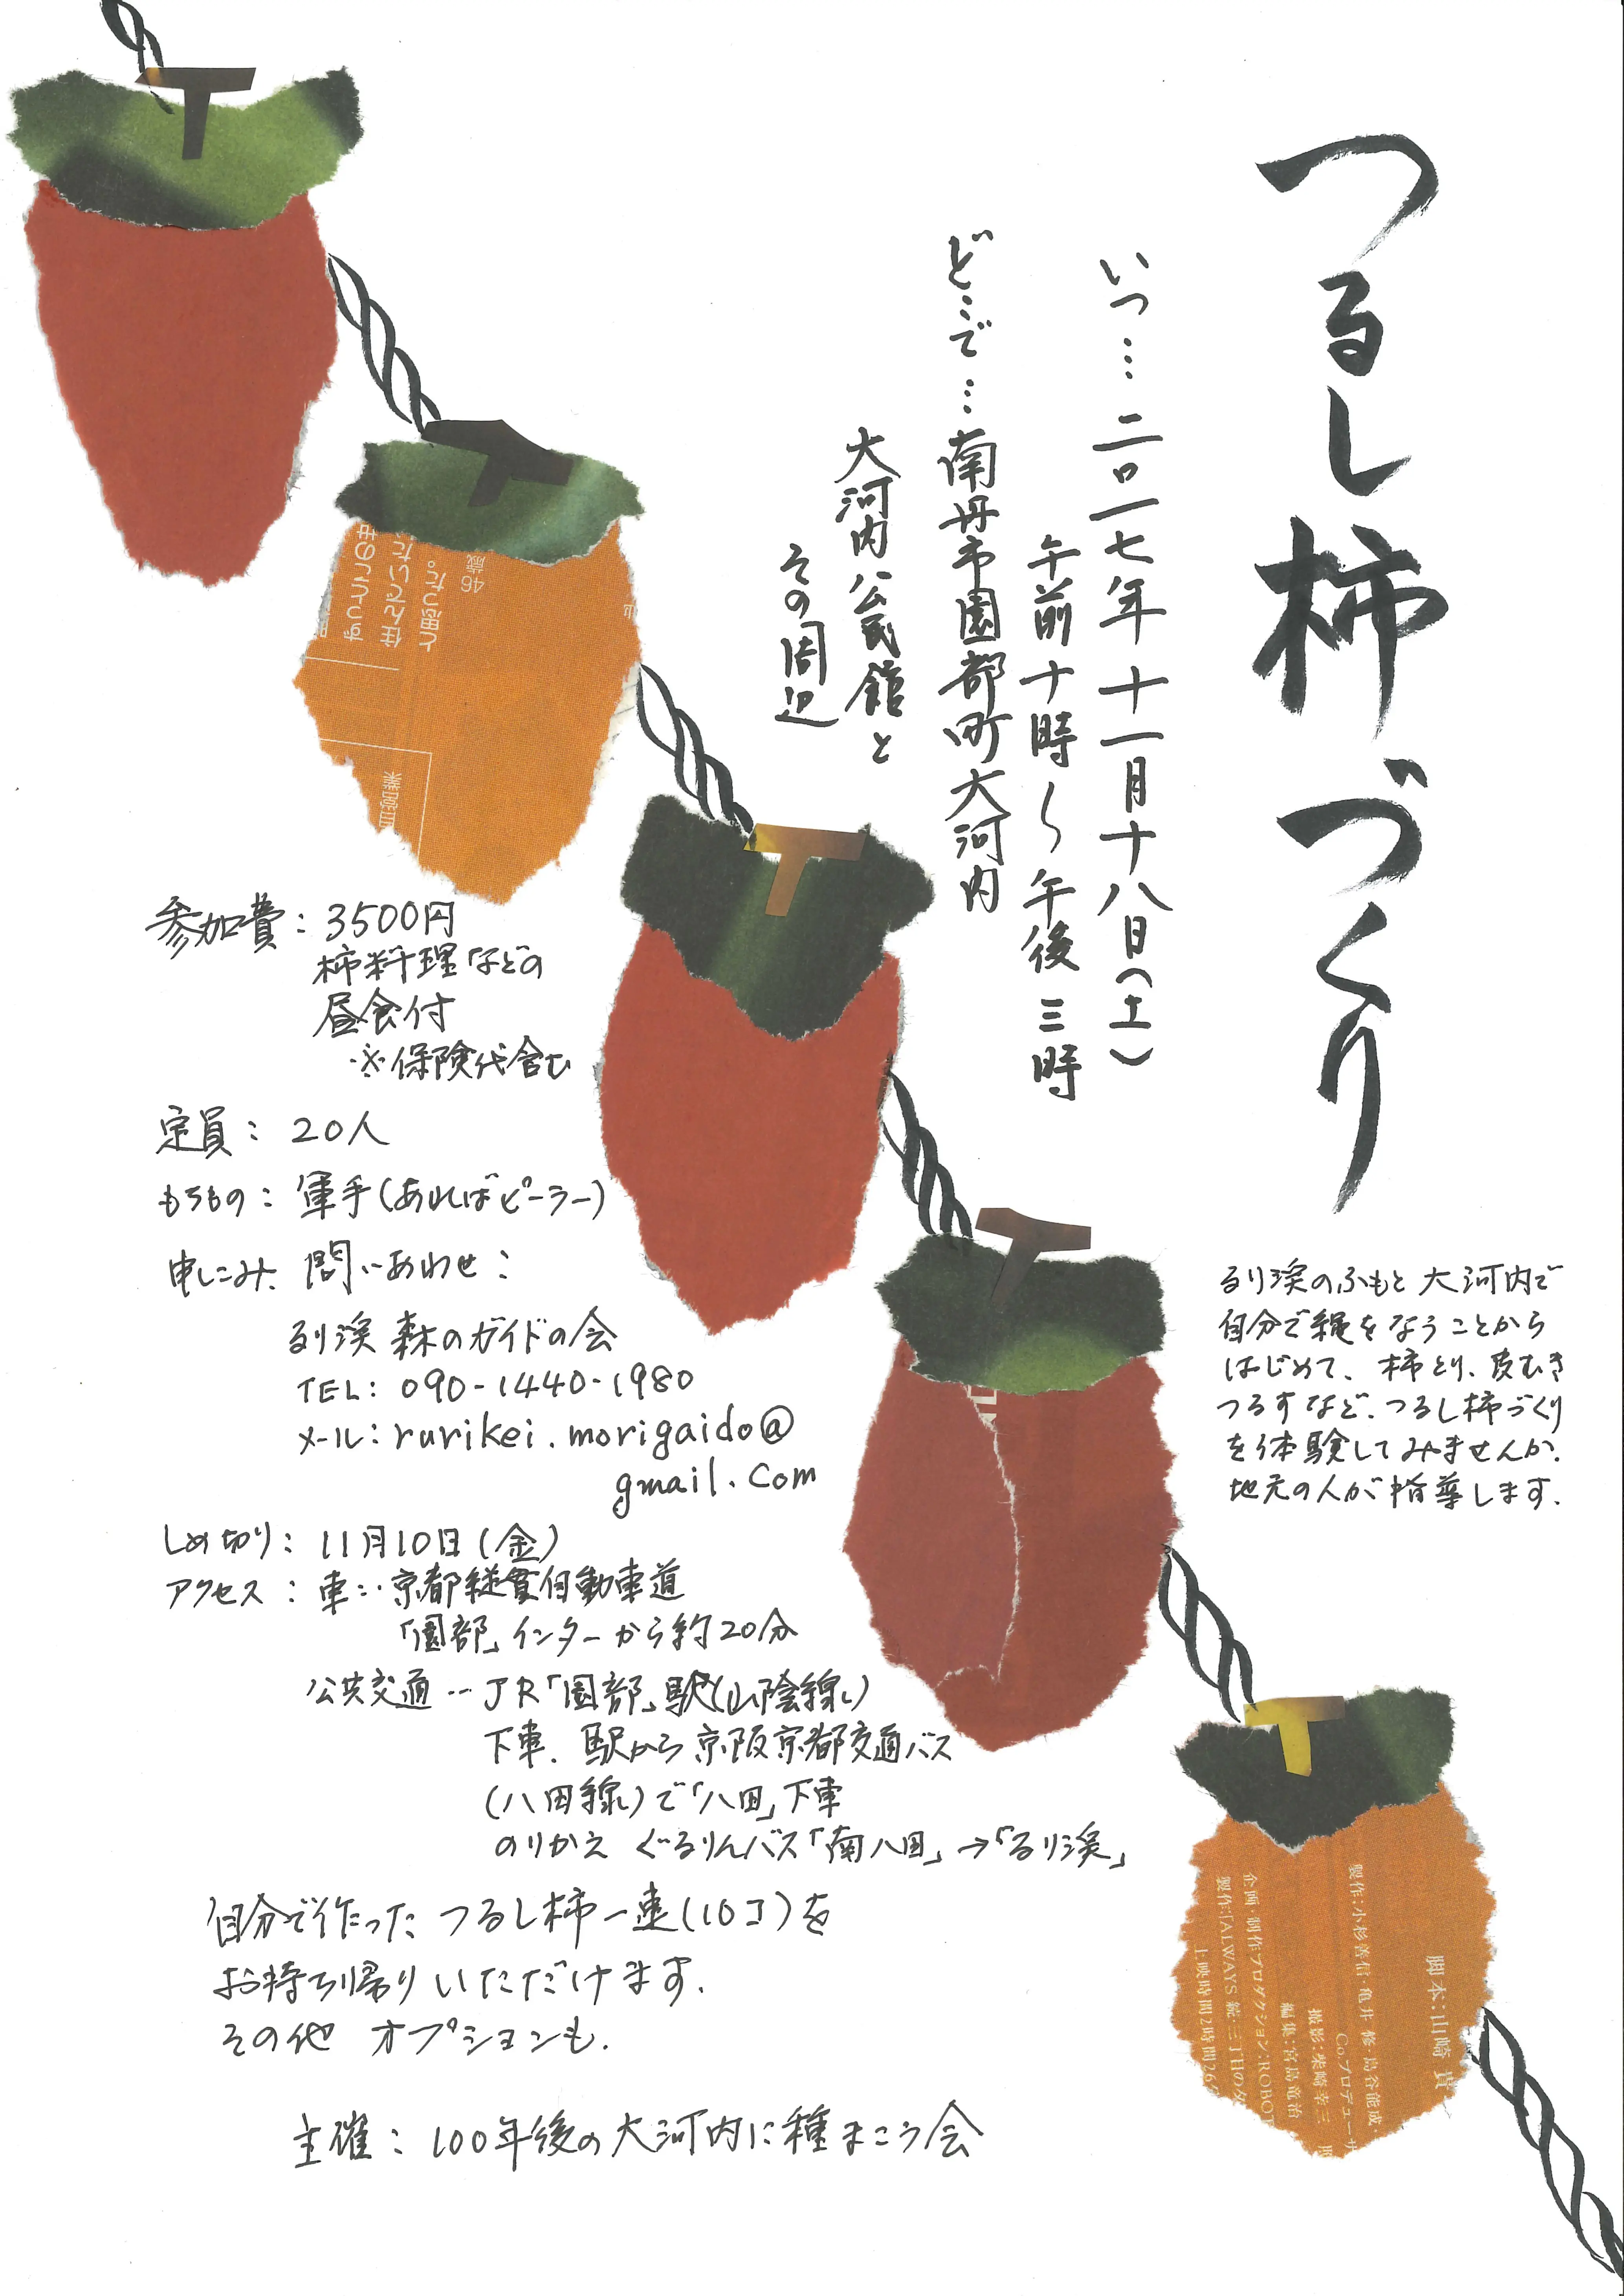 つるし柿づくり
いつ…二〇一七年十一月十八日(土)
午前十時〜午後三時
どこで…南丹市園部町大河内
大河内公民館と
その周辺
るり渓のふもと大河内で
自分で縄をなうことから
はじめて、柿とり、皮むき
つるすなど、つるし柿づくり
を体験してみませんか。
地元の人が指導します。
参加費:3500円
柿料理などの
昼食付
※保険代含む
定員:20人
もちもの:軍手(あればピーラー)
申しこみ、問いあわせ:
るり渓 森のガイドの会
TEL:090-1440-1980
メール:rurikei.morigaido@
gmail.com
しめ切り:11月10日(金)
アクセス:車…京都縦貫自動車道
「園部」インターから約20分
公共交通…JR「園部」駅(山陰線)
下車、駅から京阪京都交通バス
(八田線)で「八田」下車
のりかえ ぐるりんバス「南八田」→「るり渓」
自分で作ったつるし柿一連(10コ)を
お持ち帰りいただけます。
その他 オプションも。
主催:100年後の大河内に種まこう会
ずっとこの世
住んでいた
と思った。
46歳
脚本:山崎 貴
製作:小杉善信・亀井 修・島谷能成
Co.プロデューサ
撮影:柴崎幸三
編集:宮島竜治
企画・制作プロダクション:ROBOT
製作:「ALWAYS 続・三丁目の夕
上映時間2時間26